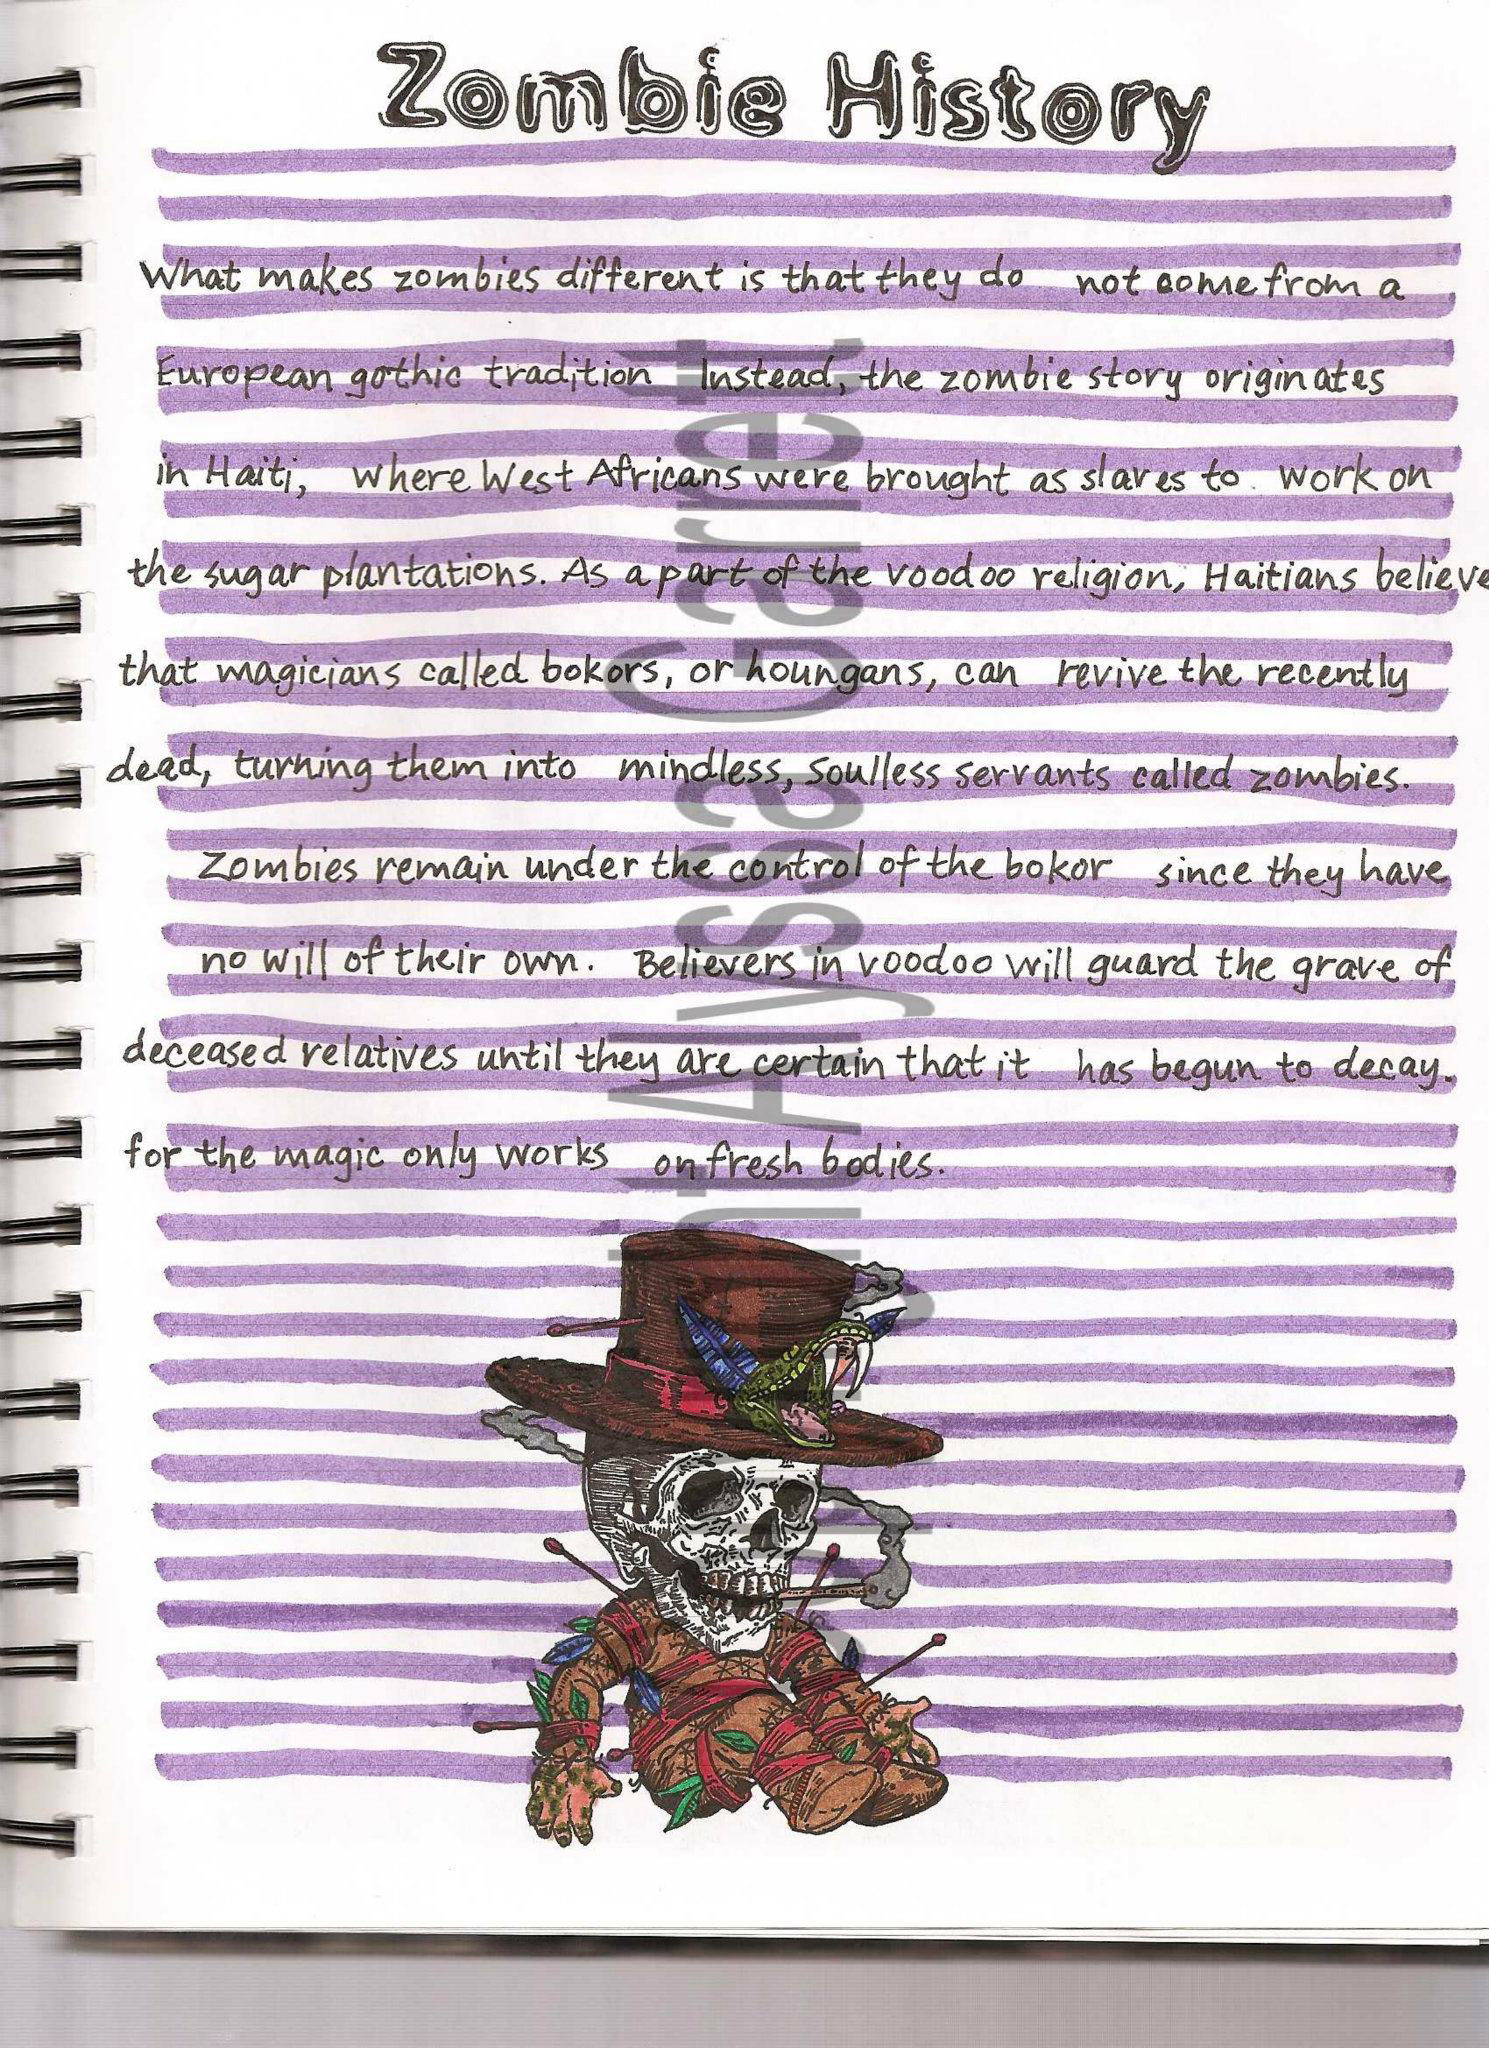 Zombie History
What makes zombies different is that they do not come from a
European gothic tradition Instead, the zombie story originates
in Haiti, where West Africans were brought as slaves to work on
the sugar plantations. As a part of the voodoo religion, Haitians believe
that magicians called bokors, or houngans, can revive the recently
dead, turning them into mindless, soulless servants called zombies.
Zombies remain under the control of the bokor since they have
no will of their own. Believers in voodoo will guard the grave of
deceased relatives until they are certain that it has begun to decay.
for the magic only works on fresh bodies.
Alyssa Garrett